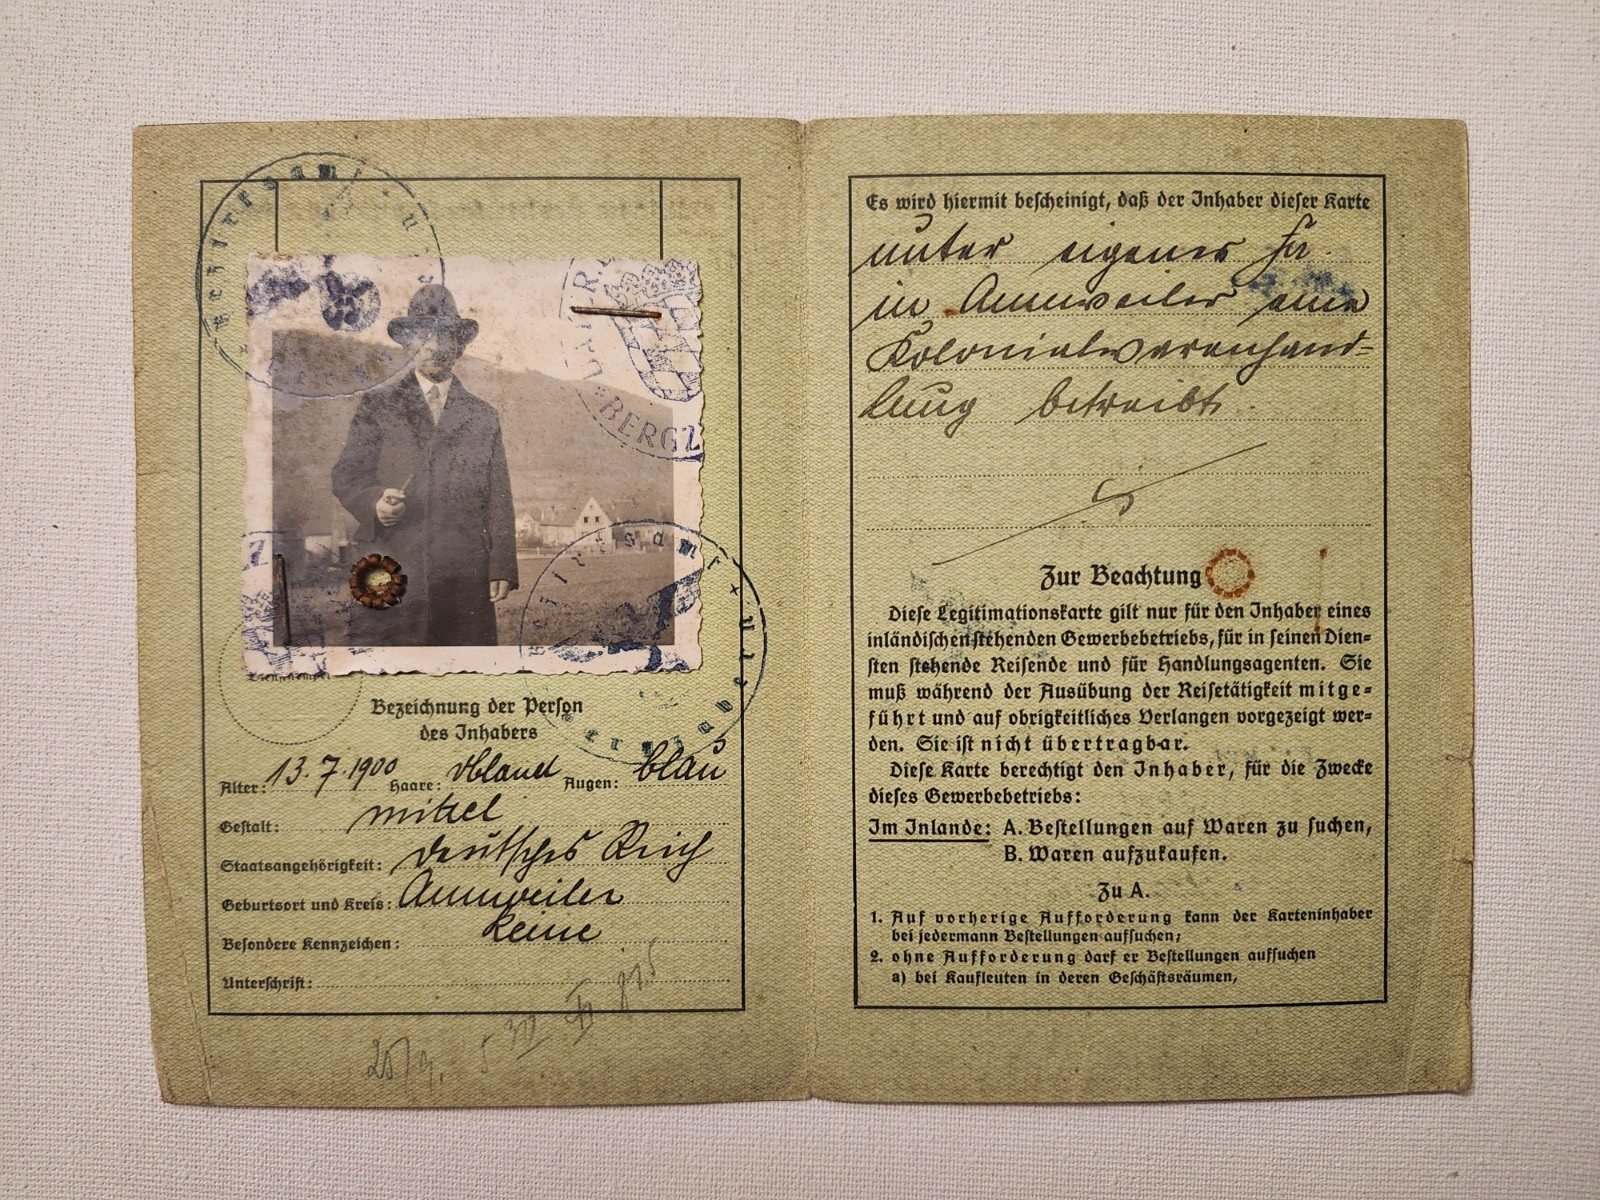 Bezirksamt
BERGZ
Bezirksamt
Bezeichnung der Person
des Inhabers
Alter: 13.7.1900 Haare: blond Augen: blau
Gestalt: mittel
Staatsangehörigkeit: Deutsches Reich
Geburtsort und Kreis: Annweiler
Besondere Kennzeichen: keine
Unterschrift:
Es wird hiermit bescheinigt, daß der Inhaber dieser Karte
unter eigener Fa.
in Annweiler eine
Kolonialwarenhand-
lung betreibt.
Zur Beachtung
Diese Legitimationskarte gilt nur für den Inhaber eines
inländischen stehenden Gewerbebetriebs, für in seinen Dien-
sten stehende Reisende und für Handlungsagenten. Sie
muß während der Ausübung der Reisetätigkeit mitge-
führt und auf obrigkeitliches Verlangen vorgezeigt wer-
den. Sie ist nicht übertragbar.
Diese Karte berechtigt den Inhaber, für die Zwecke
dieses Gewerbebetriebs:
Im Inlande: A. Bestellungen auf Waren zu suchen,
B. Waren aufzukaufen.
Zu A.
1. Auf vorherige Aufforderung kann der Karteninhaber
bei jedermann Bestellungen aufsuchen;
2. ohne Aufforderung darf er Bestellungen aufsuchen
a) bei Kaufleuten in deren Geschäftsräumen,